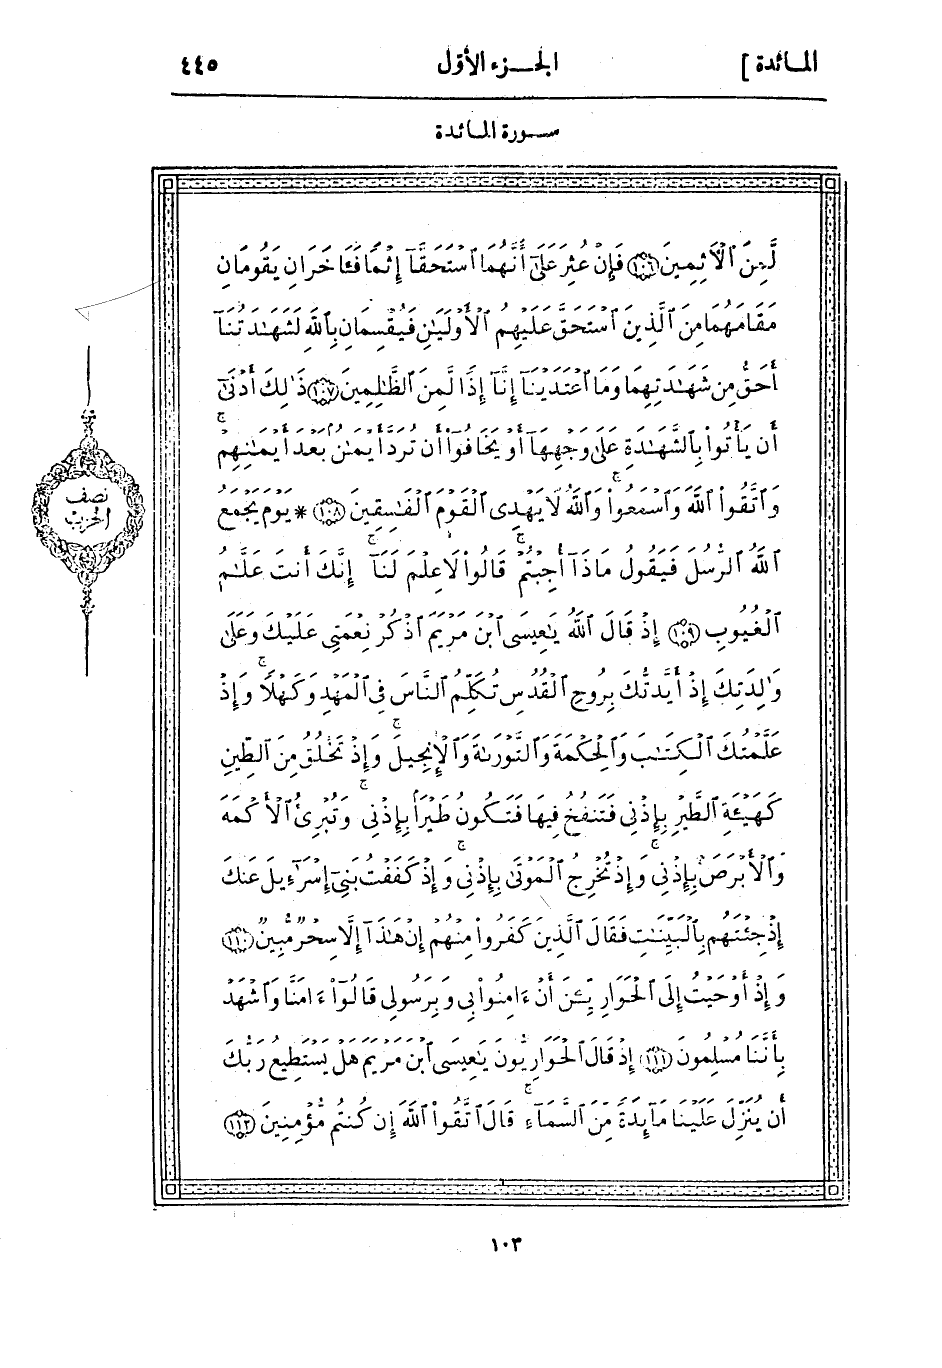 المائدة ] الجزء الأول ٤٤٥
سورة المائدة
لَّمِنَ ٱلْأَثِمِينَ ١٠٦ فَإِنْ عُثِرَ عَلَىٰٓ أَنَّهُمَا ٱسْتَحَقَّآ إِثْمًا فَـَٔاخَرَانِ يَقُومَانِ
مَقَامَهُمَا مِنَ ٱلَّذِينَ ٱسْتَحَقَّ عَلَيْهِمُ ٱلْأَوْلَيَـٰنِ فَيُقْسِمَانِ بِٱللَّهِ لَشَهَـٰدَتُنَآ
أَحَقُّ مِن شَهَـٰدَتِهِمَا وَمَا ٱعْتَدَيْنَآ إِنَّآ إِذًا لَّمِنَ ٱلظَّـٰلِمِينَ ١٠٧ ذَٰلِكَ أَدْنَىٰٓ
أَن يَأْتُوا۟ بِٱلشَّهَـٰدَةِ عَلَىٰ وَجْهِهَآ أَوْ يَخَافُوٓا۟ أَن تُرَدَّ أَيْمَـٰنٌۢ بَعْدَ أَيْمَـٰنِهِمْ ۗ
وَٱتَّقُوا۟ ٱللَّهَ وَٱسْمَعُوا۟ ۗ وَٱللَّهُ لَا يَهْدِى ٱلْقَوْمَ ٱلْفَـٰسِقِينَ ١٠٨ * يَوْمَ يَجْمَعُ
ٱللَّهُ ٱلرُّسُلَ فَيَقُولُ مَاذَآ أُجِبْتُمْ ۖ قَالُوا۟ لَا عِلْمَ لَنَآ ۖ إِنَّكَ أَنتَ عَلَّـٰمُ
ٱلْغُيُوبِ ١٠٩ إِذْ قَالَ ٱللَّهُ يَـٰعِيسَى ٱبْنَ مَرْيَمَ ٱذْكُرْ نِعْمَتِى عَلَيْكَ وَعَلَىٰ
وَٰلِدَتِكَ إِذْ أَيَّدتُّكَ بِرُوحِ ٱلْقُدُسِ تُكَلِّمُ ٱلنَّاسَ فِى ٱلْمَهْدِ وَكَهْلًا ۖ وَإِذْ
عَلَّمْتُكَ ٱلْكِتَـٰبَ وَٱلْحِكْمَةَ وَٱلتَّوْرَىٰةَ وَٱلْإِنجِيلَ ۖ وَإِذْ تَخْلُقُ مِنَ ٱلطِّينِ
كَهَيْـَٔةِ ٱلطَّيْرِ بِإِذْنِى فَتَنفُخُ فِيهَا فَتَكُونُ طَيْرًۢا بِإِذْنِى ۖ وَتُبْرِئُ ٱلْأَكْمَهَ
وَٱلْأَبْرَصَ بِإِذْنِى ۖ وَإِذْ تُخْرِجُ ٱلْمَوْتَىٰ بِإِذْنِى ۖ وَإِذْ كَفَفْتُ بَنِىٓ إِسْرَٰٓءِيلَ عَنكَ
إِذْ جِئْتَهُم بِٱلْبَيِّنَـٰتِ فَقَالَ ٱلَّذِينَ كَفَرُوا۟ مِنْهُمْ إِنْ هَـٰذَآ إِلَّا سِحْرٌ مُّبِينٌ ١١٠
وَإِذْ أَوْحَيْتُ إِلَى ٱلْحَوَارِيِّـۧنَ أَنْ ءَامِنُوا۟ بِى وَبِرَسُولِى قَالُوٓا۟ ءَامَنَّا وَٱشْهَدْ
بِأَنَّنَا مُسْلِمُونَ ١١١ إِذْ قَالَ ٱلْحَوَارِيُّونَ يَـٰعِيسَى ٱبْنَ مَرْيَمَ هَلْ يَسْتَطِيعُ رَبُّكَ
أَن يُنَزِّلَ عَلَيْنَا مَآئِدَةً مِّنَ ٱلسَّمَآءِ ۖ قَالَ ٱتَّقُوا۟ ٱللَّهَ إِن كُنتُم مُّؤْمِنِينَ ١١٢
نصف
الحزب
١٠٣